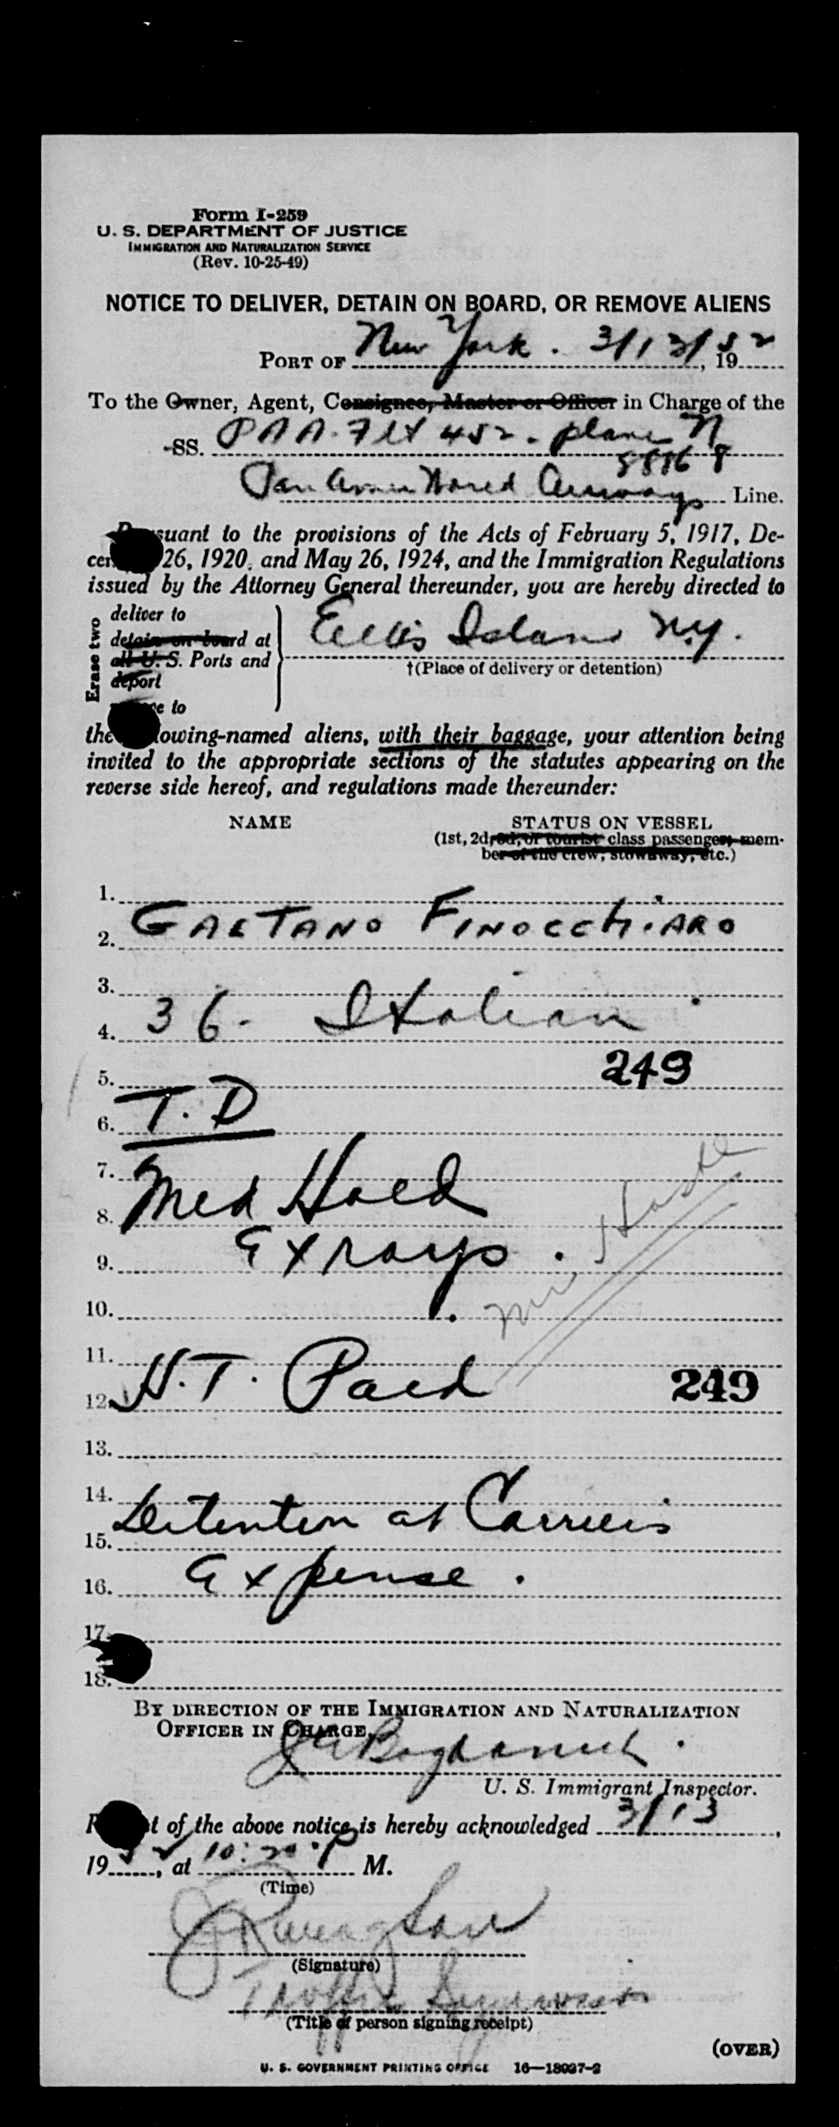 Form I-259
U. S. DEPARTMENT OF JUSTICE
IMMIGRATION AND NATURALIZATION SERVICE
(Rev. 10-25-49)
NOTICE TO DELIVER, DETAIN ON BOARD, OR REMOVE ALIENS
PORT OF New York. 3/13/, 1952
To the Owner, Agent, Consignee, Master or Officer in Charge of the
SS. PAA. Flt 452. plane N
88868
Pan Amer World Airways Line.
Pursuant to the provisions of the Acts of February 5, 1917, De-
cember 26, 1920, and May 26, 1924, and the Immigration Regulations
issued by the Attorney General thereunder, you are hereby directed to
Erase two
deliver to
detain on board at
all U. S. Ports and
deport
to
Ellis Island N.Y.
†(Place of delivery or detention)
the following-named aliens, with their baggage, your attention being
invited to the appropriate sections of the statutes appearing on the
reverse side hereof, and regulations made thereunder:
NAME STATUS ON VESSEL
(1st, 2d, 3d, or tourist class passenger, mem-
ber of the crew, stowaway, etc.)
1.
2. GAETANO FINOCCHIARO
3.
4. 36. Italian
5. 249
6. T.D
7.
8. Med Hold
9. Exrays.
10.
11.
12. H.T. Paid 249
13.
14. Detention at Carriers
15.
16. Expense.
17.
18.
BY DIRECTION OF THE IMMIGRATION AND NATURALIZATION
OFFICER IN CHARGE,
U. S. Immigrant Inspector.
Receipt of the above notice is hereby acknowledged 3/13,
1952, at 10:20 P M.
(Time)
(Signature)
Traffic
(Title of person signing receipt)
(OVER)
U. S. GOVERNMENT PRINTING OFFICE 16—18027-2